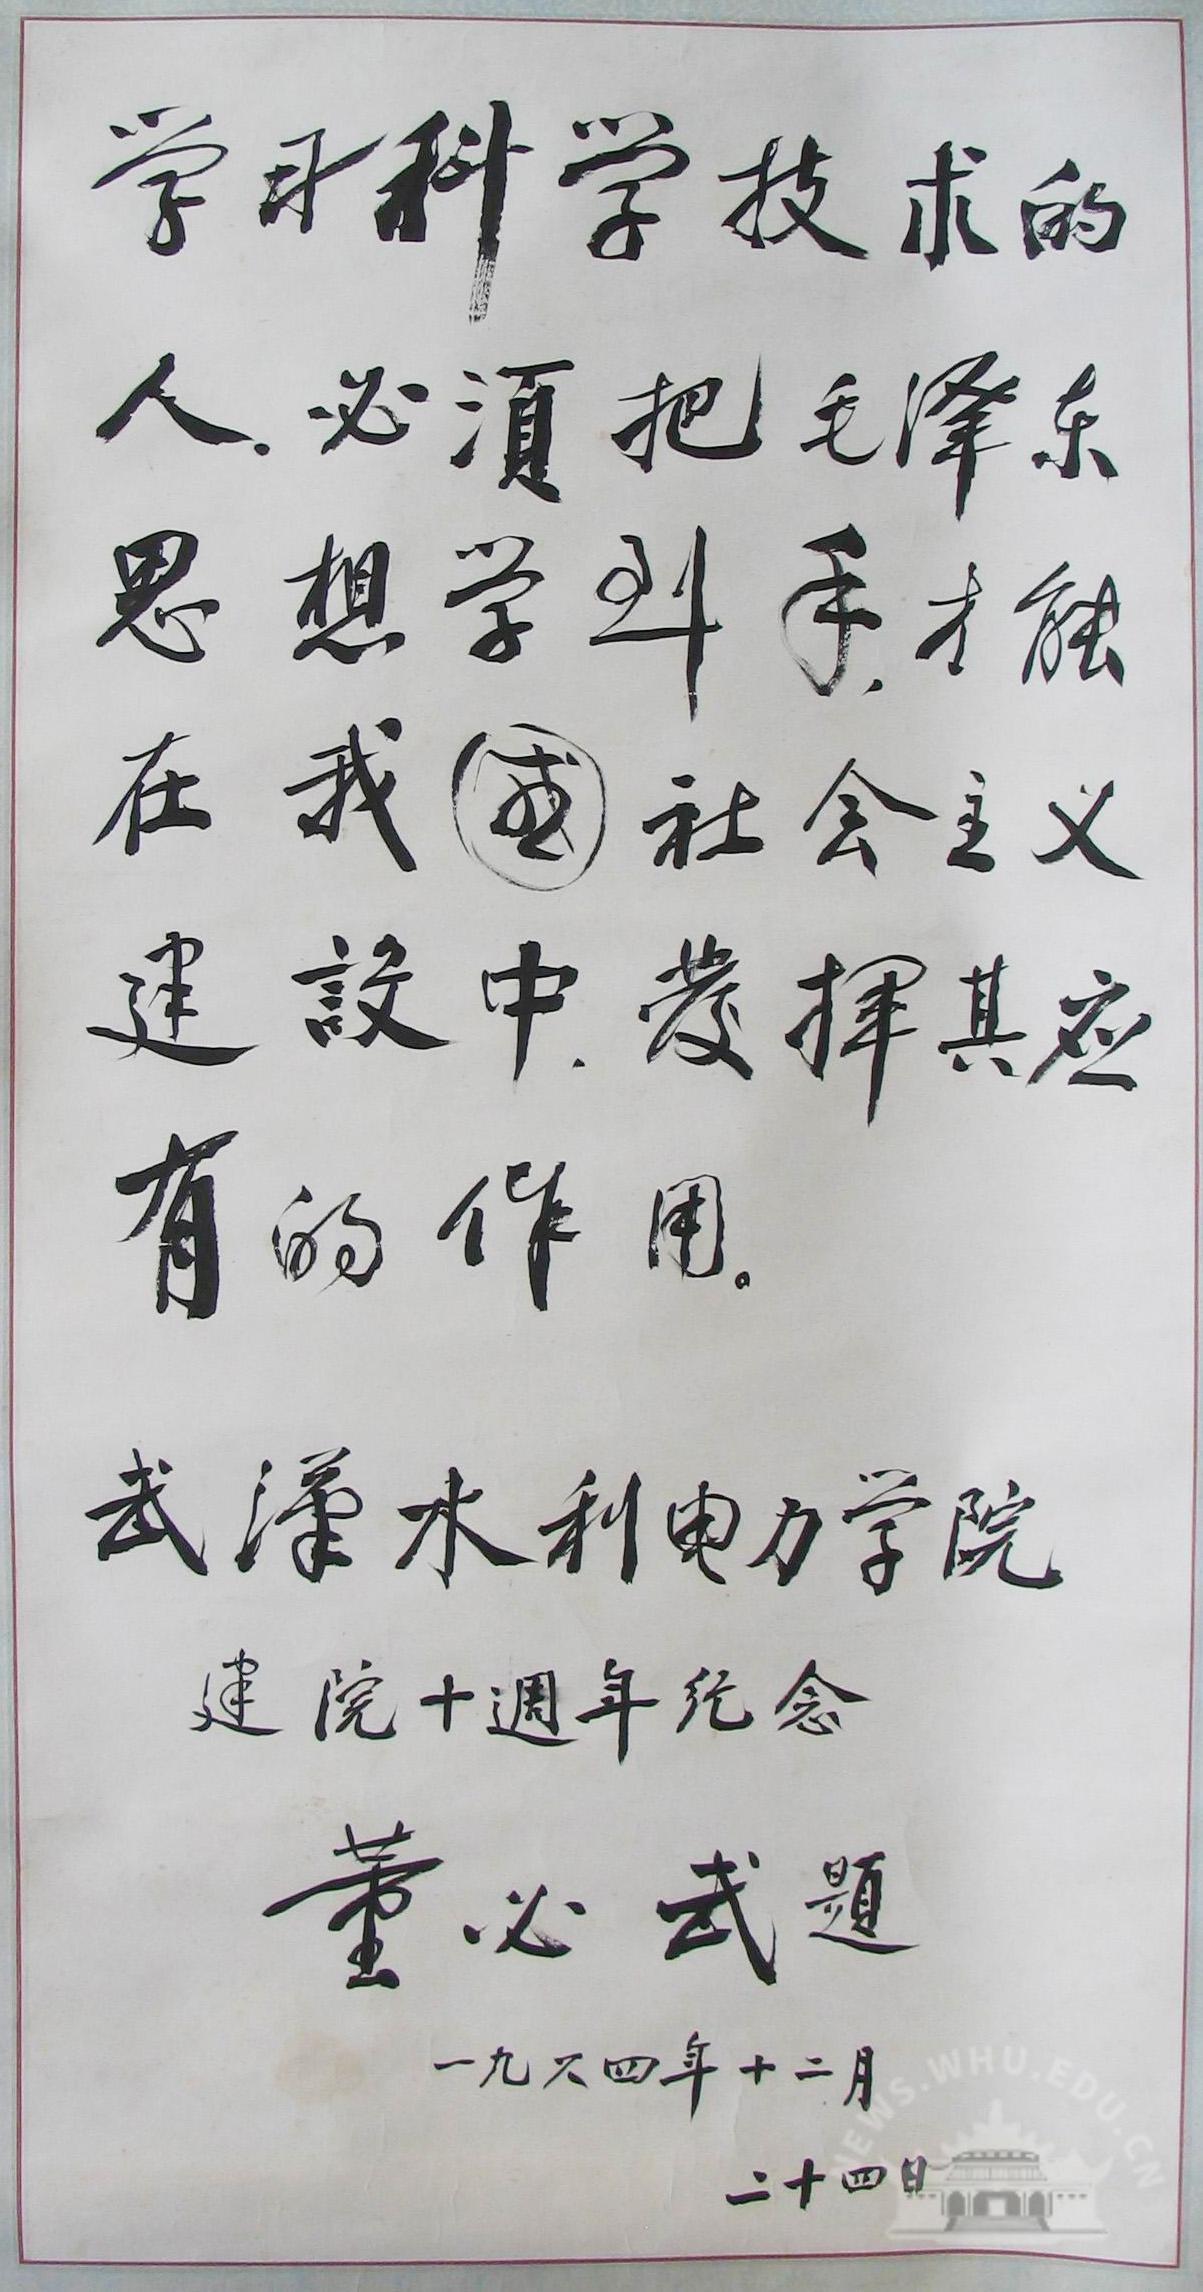 学习科学技术的
人、必須把毛泽东
思想学到手、才能
在我国社会主义
建設中、發揮其应
有的作用。
武漢水利电力学院
建院十週年纪念
董必武題
一九六四年十二月
二十四日
NEWS.WHU.EDU.CN